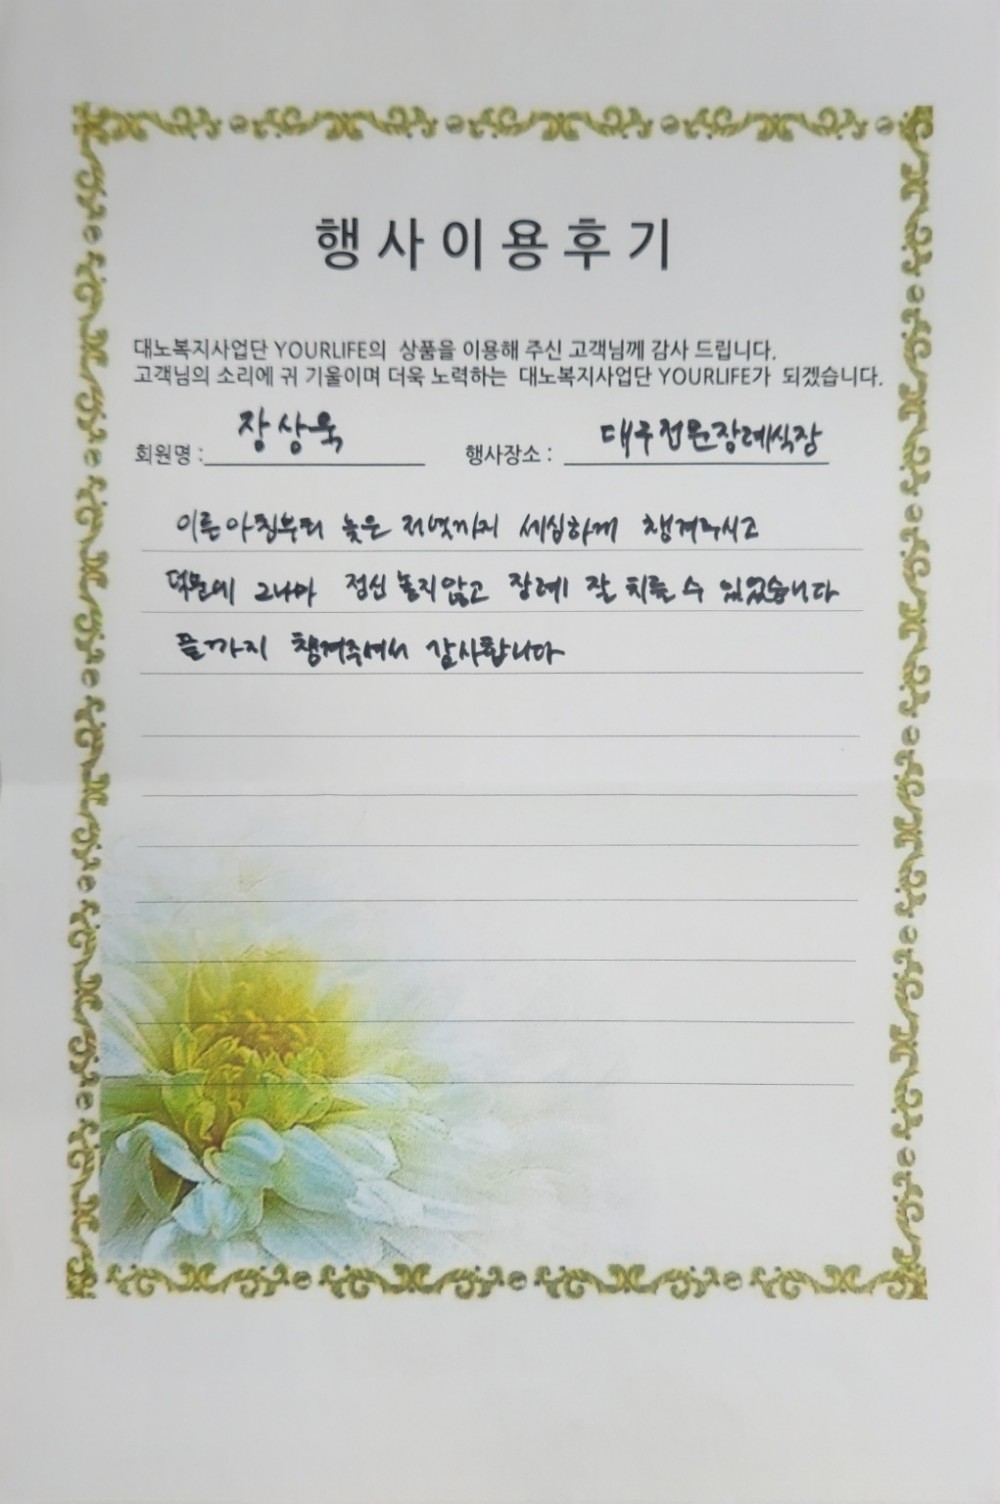 행사이용후기
대노복지사업단 YOURLIFE의 상품을 이용해 주신 고객님께 감사 드립니다.
고객님의 소리에 귀 기울이며 더욱 노력하는 대노복지사업단 YOURLIFE가 되겠습니다.
회원명 : 장상욱 행사장소 : 대구전문장례식장
이른아침부터 늦은 저녁까지 세심하게 챙겨주시고
덕분에 그나마 정신 놓지않고 장례 잘 치를 수 있었습니다
끝까지 챙겨주셔서 감사합니다